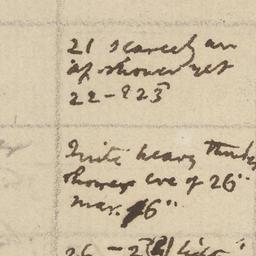 21 scarcely an
ap. shower yet
22 – & 23
Quite heavy thunder
shower eve of 26"
mar. 16"
26 –